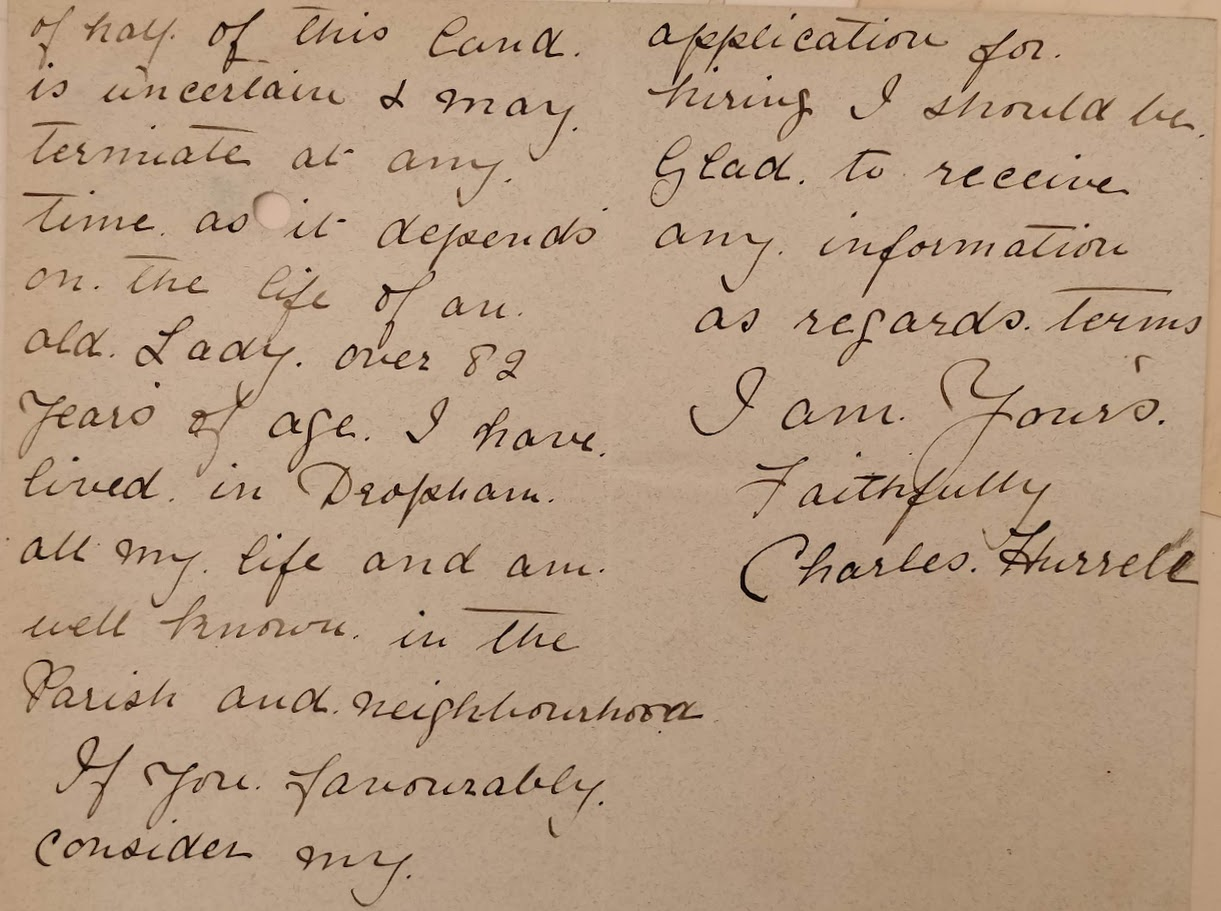 of half. of this Land.
is uncertain & may.
termiate at any.
time. as it depends
on. the life of an.
old. Lady. over 82
Years of age. I have.
lived. in Dropham.
all my. life and am.
well known. in the
Parish and. neighbourhood
If You. favourably.
consider my.
application for.
hiring I should be.
Glad. to receive
any. information
as regards. terms
I am. Yours.
Faithfully
Charles. Hurrell